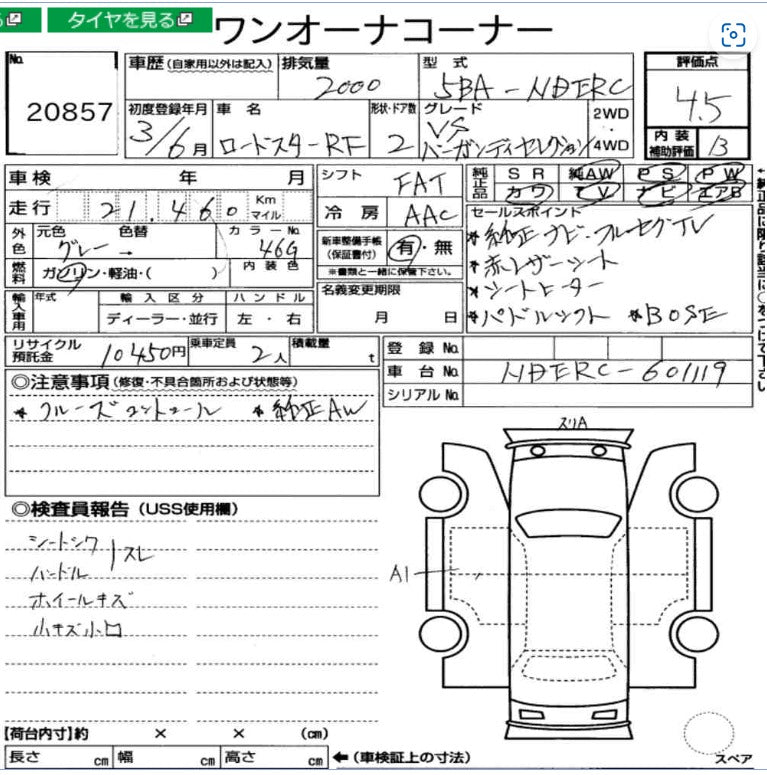 る タイヤを見る
ワンオーナーコーナー
No. 20857
車歴 (自家用以外は記入)
排気量 2000
型式 5BA-NDERC
評価点 4.5
内装補助評価 B
初度登録年月 3/6月
車名 ロードスターRF
形状・ドア数 2
グレード VS バーガンディセレクション
2WD
4WD
車検 年 月
走行 21.460 Km マイル
外色 元色 グレー → 色替
カラーNo. 46G
内装色
燃料 ガソリン・軽油・( )
輸入車用 年式 輸入区分 ディーラー・並行 ハンドル 左・右
シフト FAT
冷房 AAC
新車整備手帳 (保証書付) 有・無
※書類と一緒に保管下さい。
名義変更期限 月 日
純正品 SR 純AW PS PW
カワ TV ナビ エアB
セールスポイント
*純正ナビ・フルセグTV
*赤レザーシート
*シートヒーター
*パドルシフト *BOSE
←純正品に限り該当に○をつけて下さい
リサイクル預託金 10450円
乗車定員 2人
積載量 t
登録No.
車台No. NDERC-601119
シリアルNo.
◎注意事項 (修復・不具合箇所および状態等)
*クルーズコントロール *純正AW
◎検査員報告 (USS使用欄)
シートシワ
スレ
ハンドル
ホイールキズ
小キズ小凹
スリA
A1
【荷台内寸】約 × × (cm)
長さ cm 幅 cm 高さ cm ←(車検証上の寸法)
スペア